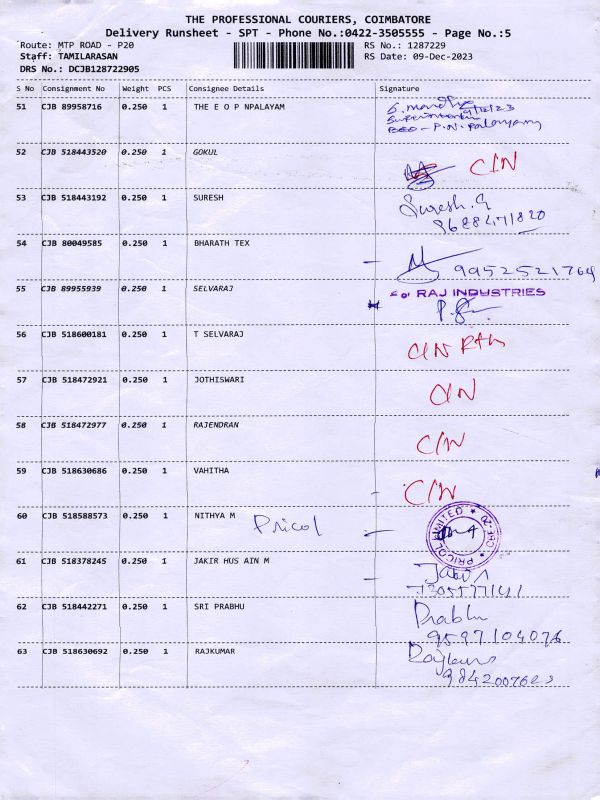 THE PROFESSIONAL COURIERS, COIMBATORE
Delivery Runsheet - SPT - Phone No.:0422-3505555 - Page No.:5
Route: MTP ROAD - P20 RS No.: 1287229
Staff: TAMILARASAN RS Date: 09-Dec-2023
DRS No.: DCJB128722905
S No Consignment No Weight PCS Consignee Details Signature
51 CJB 89958716 0.250 1 THE E O P NPALAYAM
BEO - P.N. Palayam
52 CJB 518443520 0.250 1 GOKUL
C/N
53 CJB 518443192 0.250 1 SURESH Suresh.G
9688471820
54 CJB 80049585 0.250 1 BHARATH TEX
9952521764
55 CJB 89955939 0.250 1 SELVARAJ For RAJ INDUSTRIES
56 CJB 518600181 0.250 1 T SELVARAJ
C/N
57 CJB 518472921 0.250 1 JOTHISWARI
C/N
58 CJB 518472977 0.250 1 RAJENDRAN
C/N
59 CJB 518630686 0.250 1 VAHITHA
C/N
60 CJB 518588573 0.250 1 NITHYA M Pricol
PRICOL LIMITED
61 CJB 518378245 0.250 1 JAKIR HUS AIN M
62 CJB 518442271 0.250 1 SRI PRABHU Prabhu
9597104076
63 CJB 518630692 0.250 1 RAJKUMAR Rajkumar